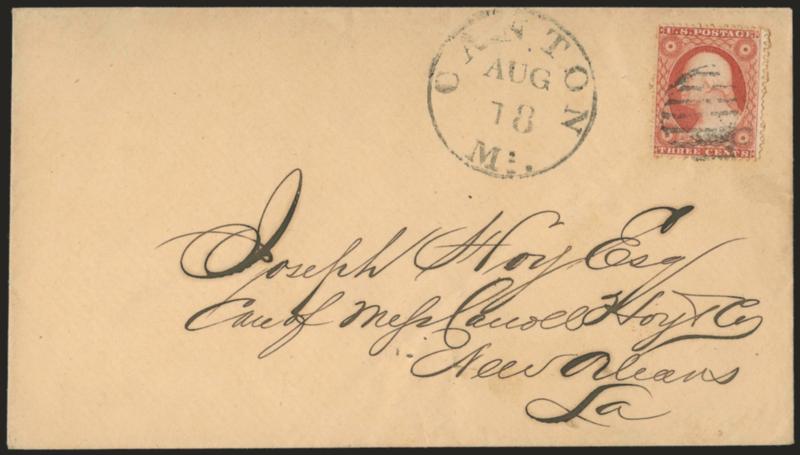 U.S. POSTAGE
THREE CENTS
CANTON
AUG
18
Mi.
Joseph Hoy Esq
Care of Mess Carroll Hoy & Co
New Orleans
La